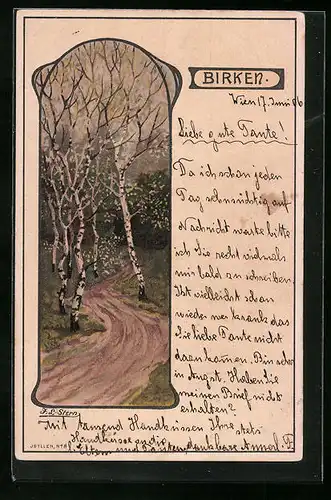 BIRKEN.
Wien 17. Juni 06
Liebe gute Tante!
Da ich schon jeden
Tag sehnsüchtig auf
Nachricht warte bitte
ich Sie recht vielmals
mir bald zu schreiben.
Ist vielleicht schon
wieder wer krank das
Sie liebe Tante nicht
dazu kamen. Bin sehr
in Angst. Haben Sie
meinen Brief nicht
erhalten?
F. L. Stern.
Mit tausend Handküssen Ihre stets
Handküsse an die
Eltern und dankbare